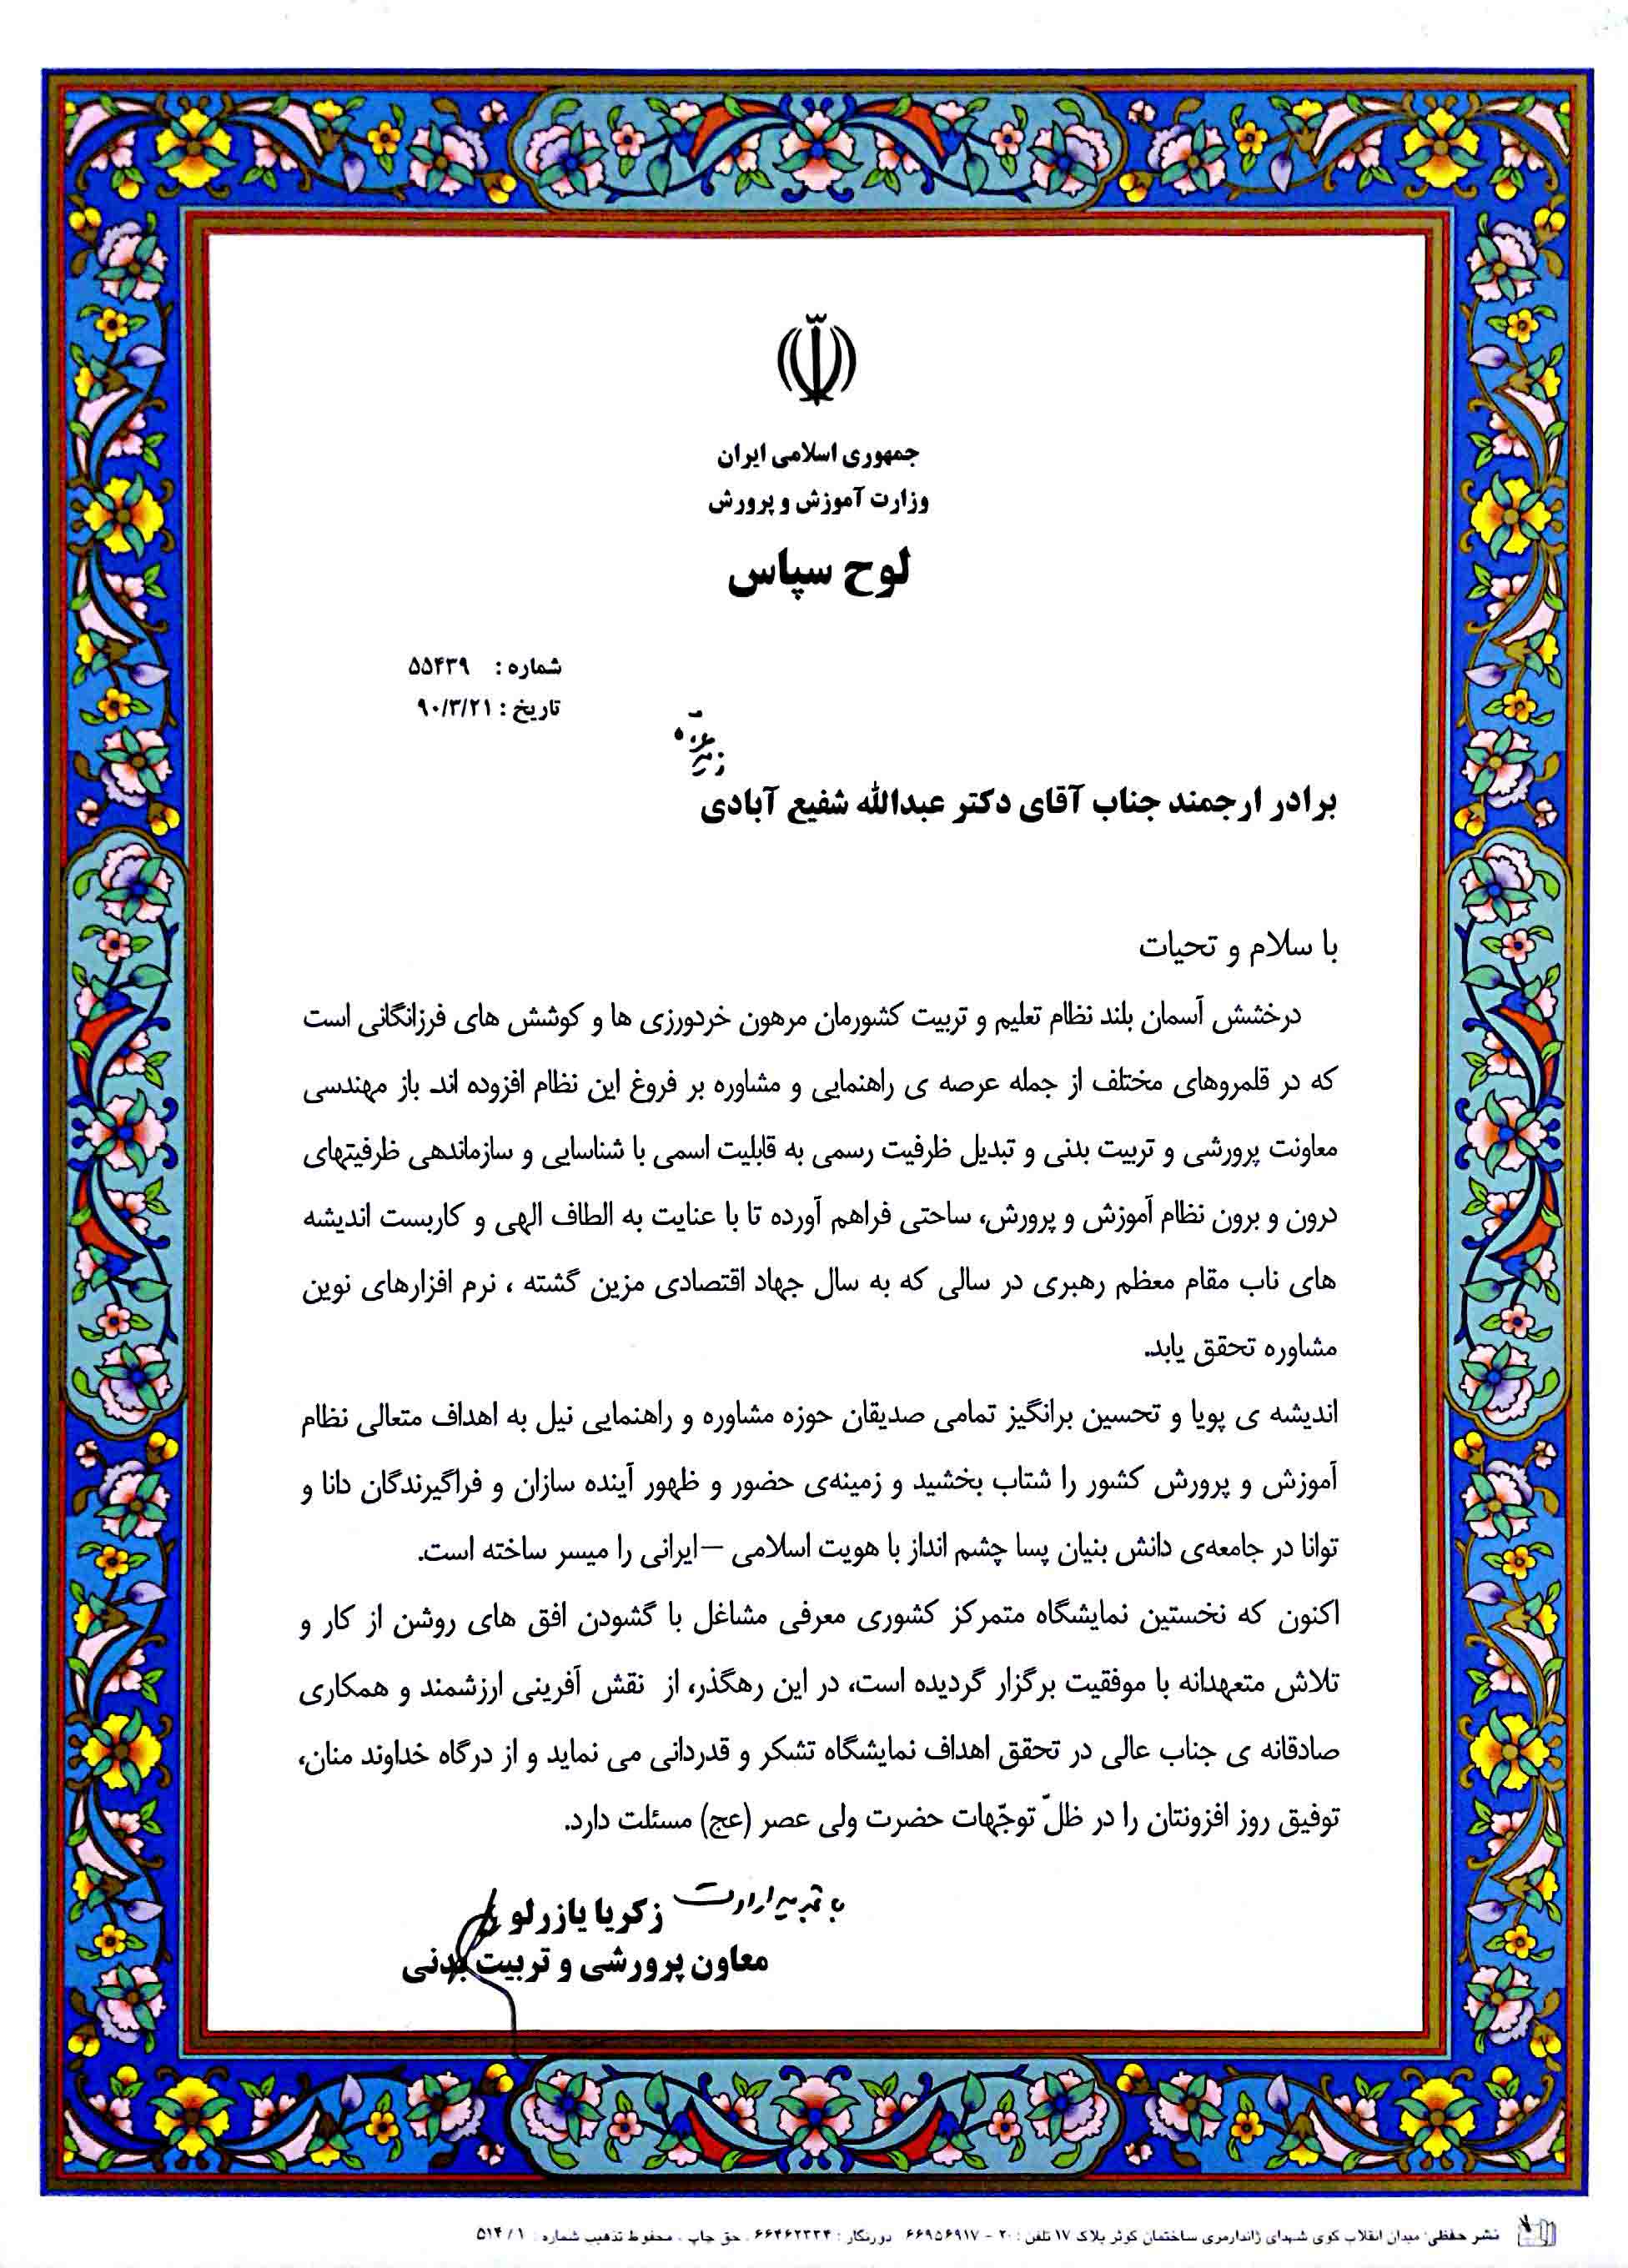 جمهوری اسلامی ایران
وزارت آموزش و پرورش
لوح سپاس
شماره : ۵۵۴۳۹
تاریخ : ۹۰/۳/۲۱
زید عزه
برادر ارجمند جناب آقای دکتر عبدالله شفیع آبادی
با سلام و تحیات
درخشش آسمان بلند نظام تعلیم و تربیت کشورمان مرهون خردورزی ها و کوشش های فرزانگانی است
که در قلمروهای مختلف از جمله عرصه ی راهنمایی و مشاوره بر فروغ این نظام افزوده اند. باز مهندسی
معاونت پرورشی و تربیت بدنی و تبدیل ظرفیت رسمی به قابلیت اسمی با شناسایی و سازماندهی ظرفیتهای
درون و برون نظام آموزش و پرورش، ساحتی فراهم آورده تا با عنایت به الطاف الهی و کاربست اندیشه
های ناب مقام معظم رهبری در سالی که به سال جهاد اقتصادی مزین گشته ، نرم افزارهای نوین
مشاوره تحقق یابد.
اندیشه ی پویا و تحسین برانگیز تمامی صدیقان حوزه مشاوره و راهنمایی نیل به اهداف متعالی نظام
آموزش و پرورش کشور را شتاب بخشید و زمینه‌ی حضور و ظهور آینده سازان و فراگیرندگان دانا و
توانا در جامعه‌ی دانش بنیان پسا چشم انداز با هویت اسلامی –ایرانی را میسر ساخته است.
اکنون که نخستین نمایشگاه متمرکز کشوری معرفی مشاغل با گشودن افق های روشن از کار و
تلاش متعهدانه با موفقیت برگزار گردیده است، در این رهگذر، از نقش آفرینی ارزشمند و همکاری
صادقانه ی جناب عالی در تحقق اهداف نمایشگاه تشکر و قدردانی می نماید و از درگاه خداوند منان،
توفیق روز افزونتان را در ظلّ توجّهات حضرت ولی عصر (عج) مسئلت دارد.
با تجدید ارادت
زکریا یازرلو
معاون پرورشی و تربیت بدنی
نشر حفظی: میدان انقلاب کوی شهدای ژاندارمری ساختمان کوثر پلاک ۱۷ تلفن : ۲۰ - ۶۶۹۵۶۹۱۷ دورنگار : ۶۶۴۶۲۲۲۴ . حق چاپ . محفوظ تذهیب شماره : ۵۱۴/۱